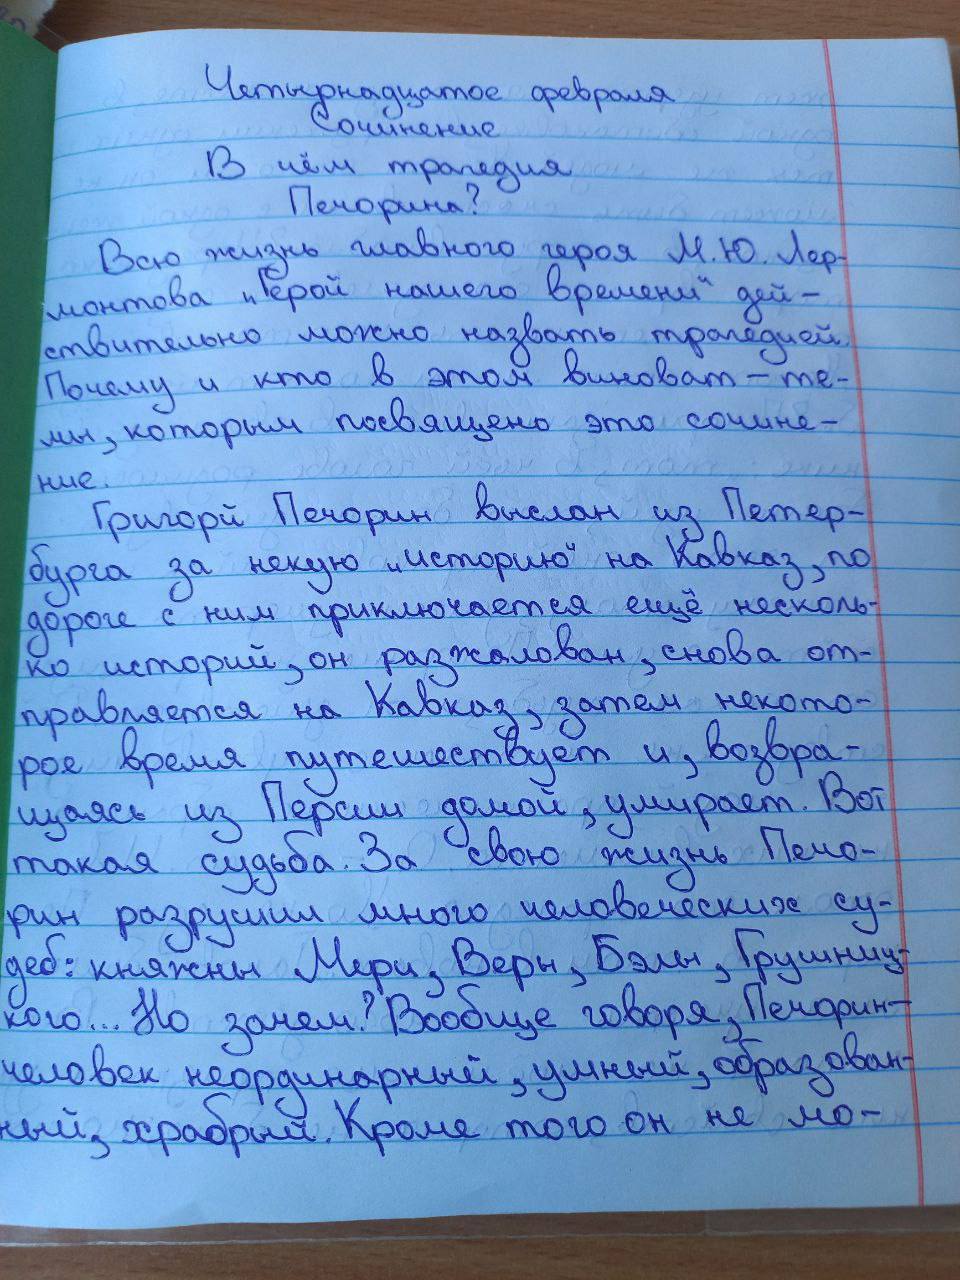 Четырнадцатое февраля
Сочинение
В чём трагедия
Печорина?
Всю жизнь главного героя М.Ю. Лер-
монтова „Герой нашего времени“ дей-
ствительно можно назвать трагедией.
Почему и кто в этом виноват – те-
мы, которым посвящено это сочине-
ние.
Григорй Печорин выслан из Петер-
бурга за некую „историю“ на Кавказ, по
дороге с ним приключается ещё несколь-
ко историй, он разжалован, снова от-
правляется на Кавказ, затем некото-
рое время путешествует и, возвра-
щаясь из Персии домой, умирает. Вот
такая судьба. За свою жизнь Печо-
рин разрушил много человеческих су-
деб: княжны Мери, Веры, Бэлы, Грушниц-
кого... Но зачем? Вообще говоря, Печорин-
человек неординарный, умный, образован-
ный, храбрый. Кроме того он не мо-